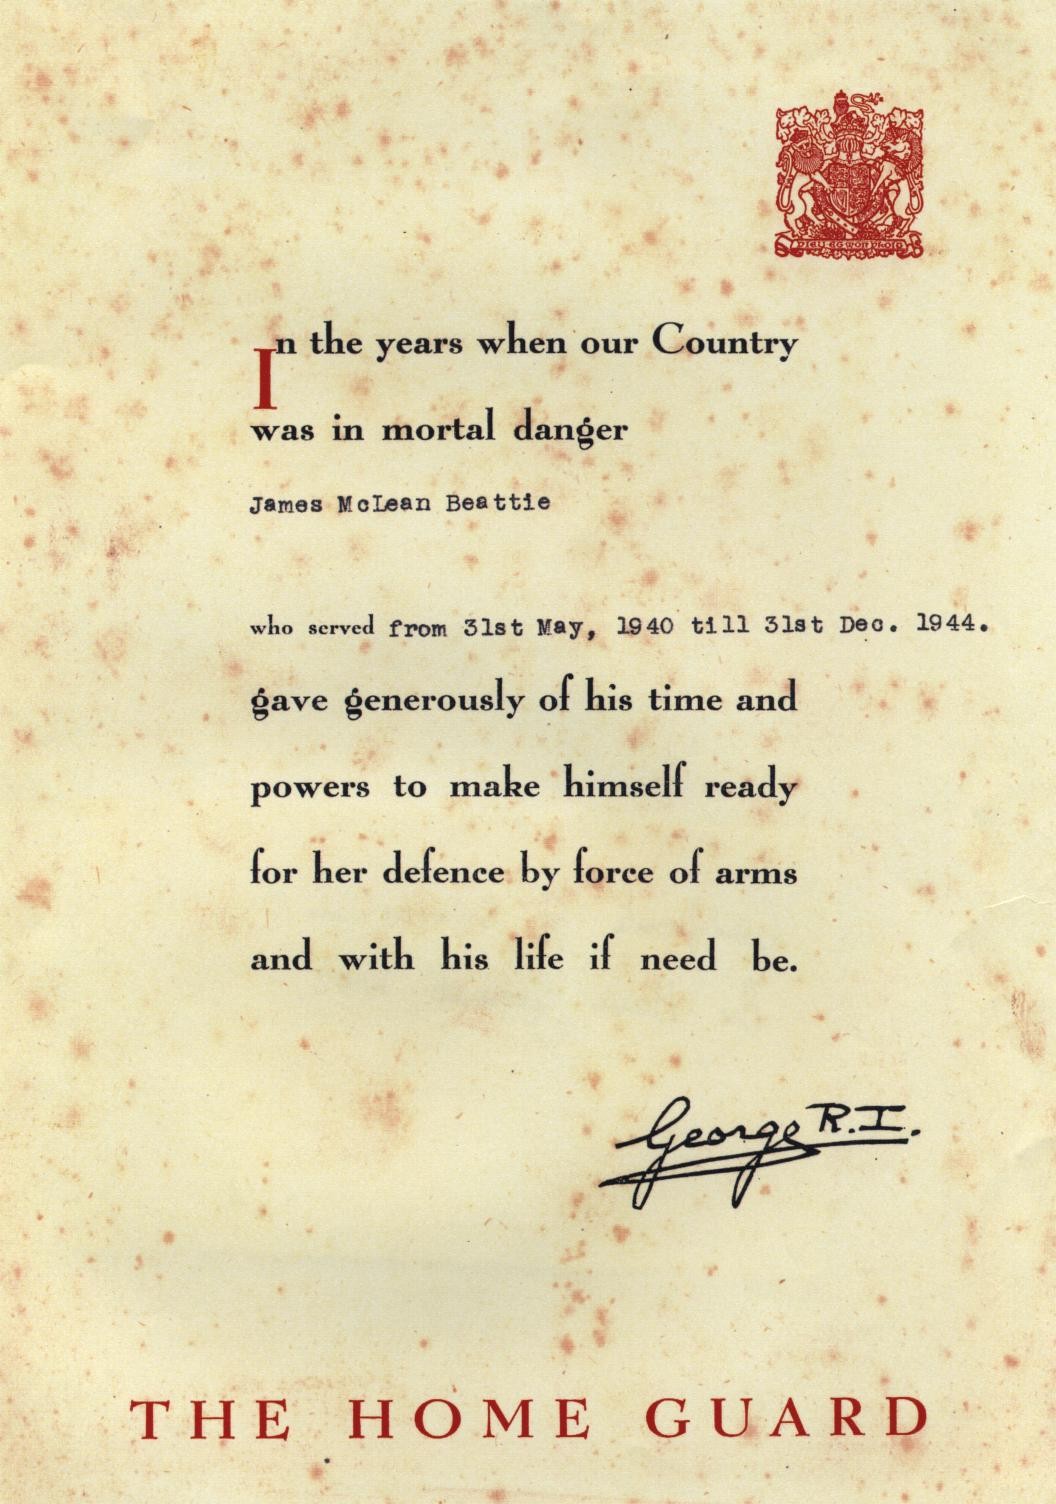 DIEU ET MON DROIT
In the years when our Country
was in mortal danger
James McLean Beattie
who served from 31st May, 1940 till 31st Dec. 1944.
gave generously of his time and
powers to make himself ready
for her defence by force of arms
and with his life if need be.
George R.I.
THE HOME GUARD